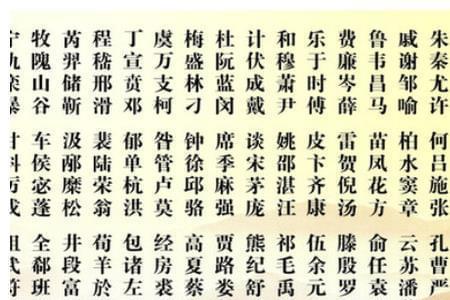 朱秦尤许 何吕施张 孔曹严
戚谢邹喻 柏水窦章 云苏潘
鲁韦昌马 苗凤花方 俞任袁
费廉岑薛 雷贺倪汤 滕殷罗
乐于时傅 皮卞齐康 伍余元
和穆萧尹 姚邵湛汪 祁毛禹
计伏成戴 谈宋茅庞 熊纪舒
杜阮蓝闵 席季麻强 贾路娄
梅盛林刁 钟徐邱骆 高夏蔡
虞万支柯 昝管卢莫 经房裘
丁宣贲邓 郁单杭洪 包诸左
程嵇邢滑 裴陆荣翁 荀羊於
芮羿储靳 汲邴糜松 井段富
牧隗山谷 车侯宓蓬 全郗班
宁仇栾暴 甘钭厉戎 祖武符